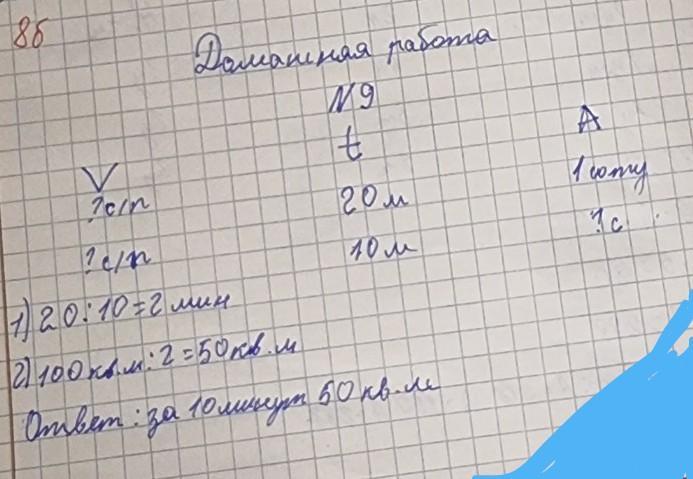 8б
Домашняя работа
N9
V t A
?с/п 20м 1 сотку
?с/п 10м ?с
1) 20:10=2 мин
2) 100кв.м:2=50кв.м
Ответ: за 10 минут 50 кв.м